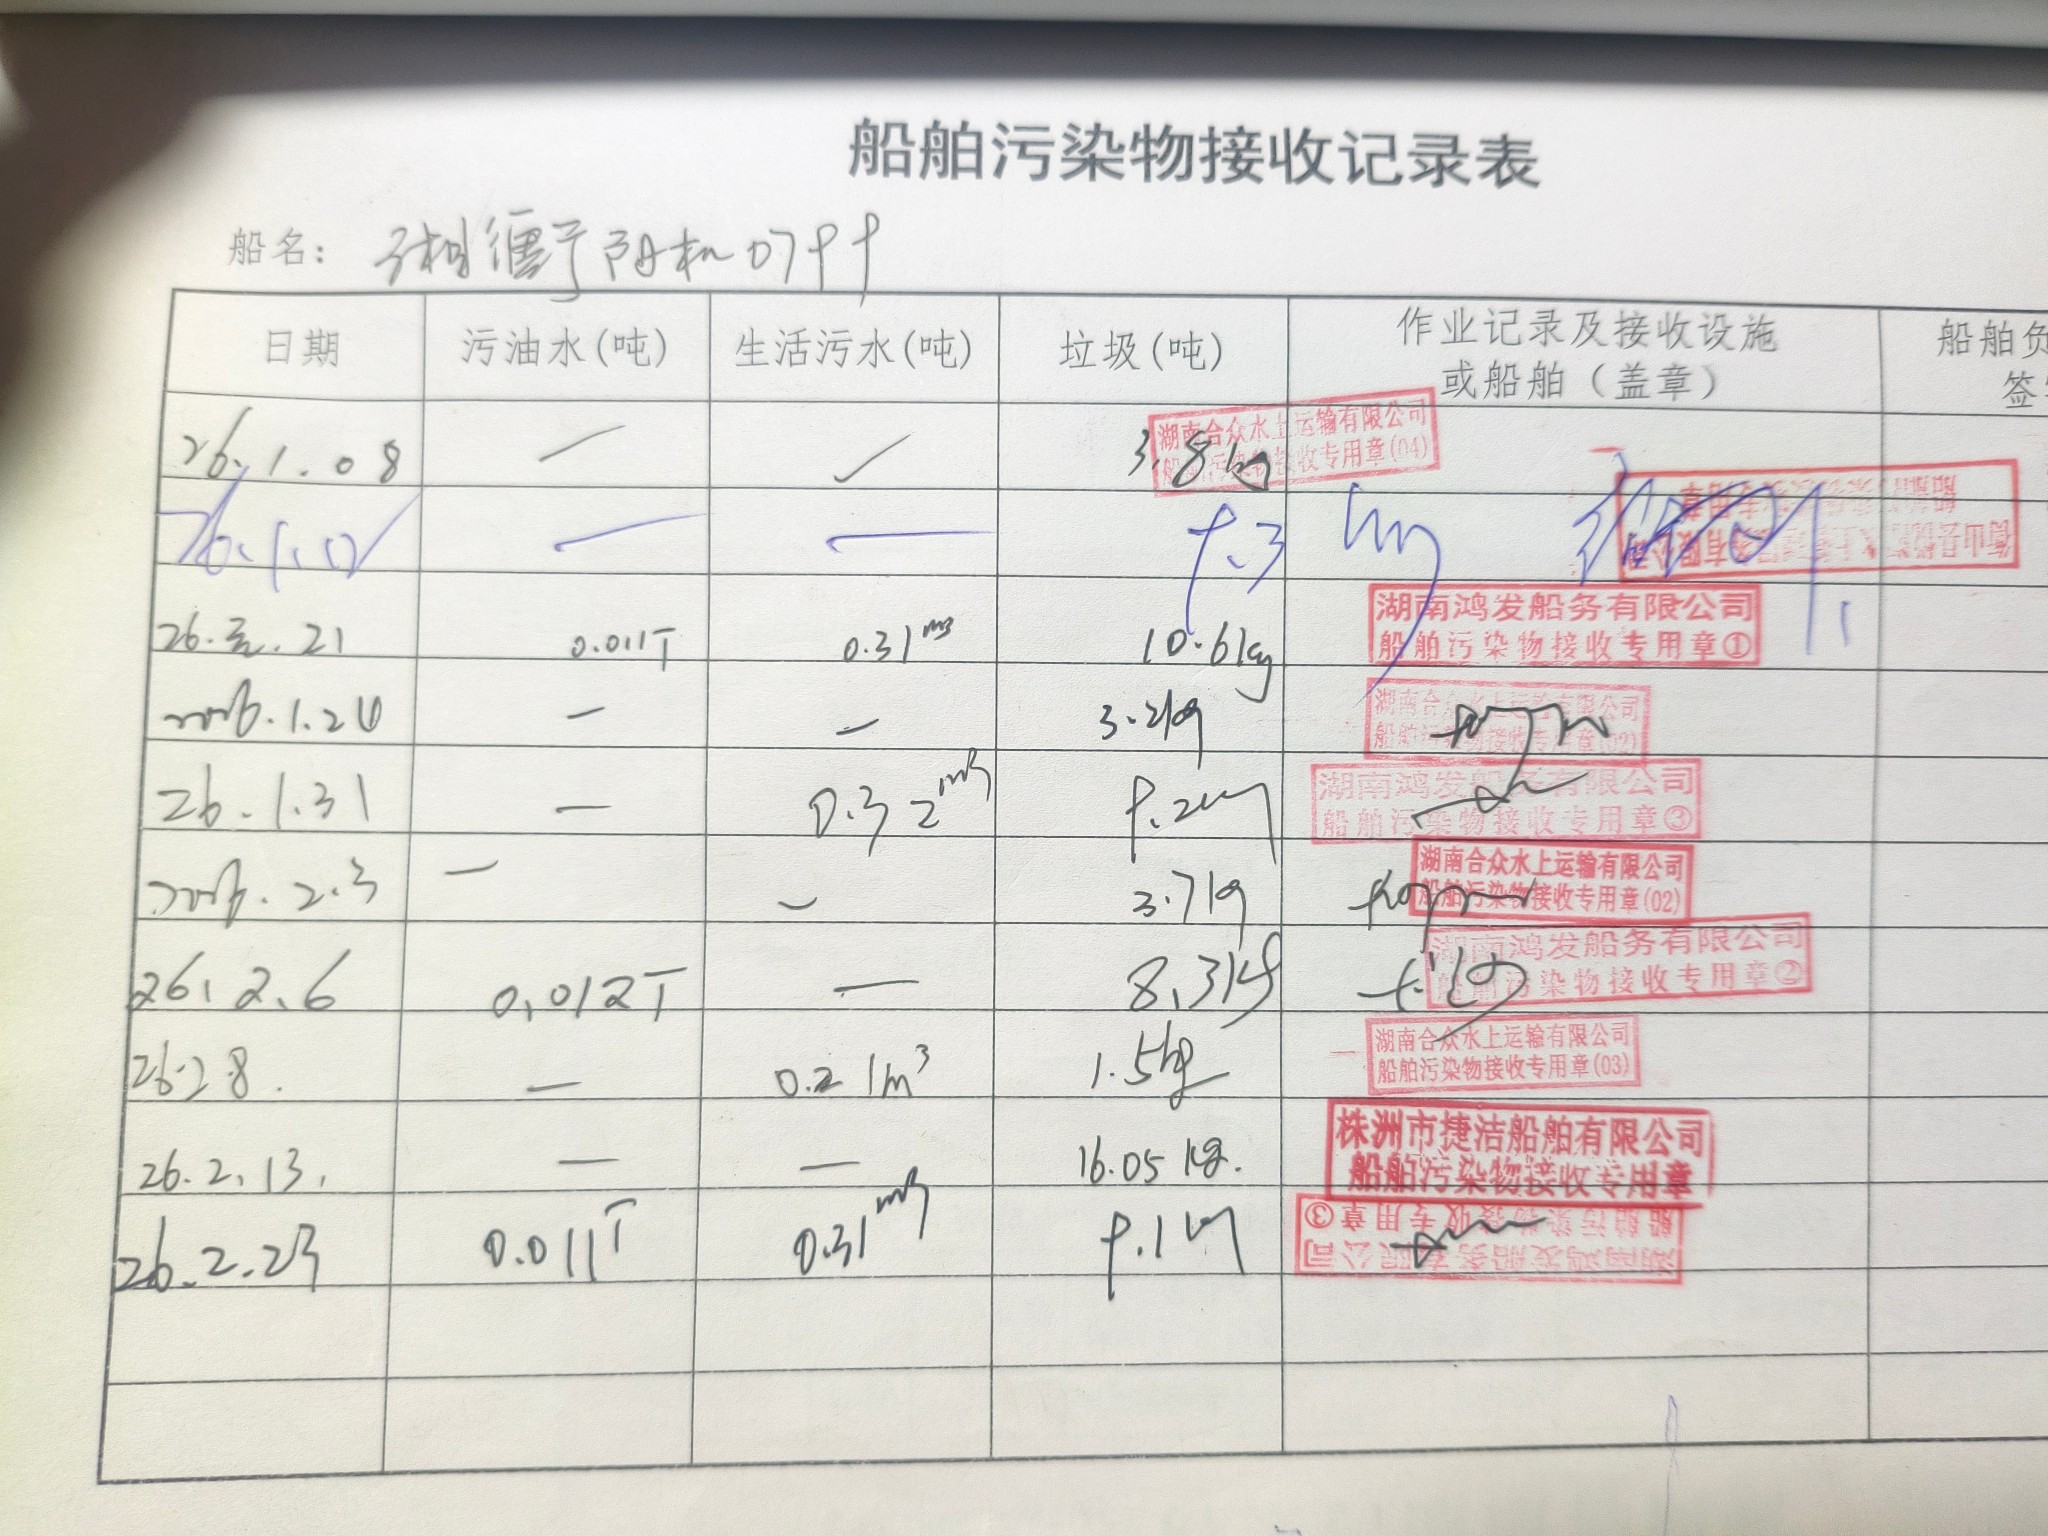 船舶污染物接收记录表
船名：湘衡阳机0799
日期 污油水(吨) 生活污水(吨) 垃圾(吨) 作业记录及接收设施或船舶（盖章） 船舶负 签
26.1.08 — — 3.8kg 湖南合众水上运输有限公司 船舶污染物接收专用章(04)
26.1.12 — — 9.3
26.元.21 0.011T 0.31m3 10.6kg 湖南鸿发船务有限公司 船舶污染物接收专用章①
2026.1.24 — — 3.2kg 湖南合众水上运输有限公司 船舶污染物接收专用章(02)
26.1.31 — 0.32m3 9.2kg 湖南鸿发船务有限公司 船舶污染物接收专用章③
2026.2.3 — — 3.7kg 湖南合众水上运输有限公司 船舶污染物接收专用章(02)
26.2.6 0.012T — 8.3kg 湖南鸿发船务有限公司 船舶污染物接收专用章②
26.2.8. — 0.21m3 1.5kg 湖南合众水上运输有限公司 船舶污染物接收专用章(03)
26.2.13. — — 16.05kg. 株洲市捷洁船舶有限公司 船舶污染物接收专用章
26.2.23 0.011T 0.31m3 9.1kg 湖南鸿发船务有限公司 船舶污染物接收专用章③